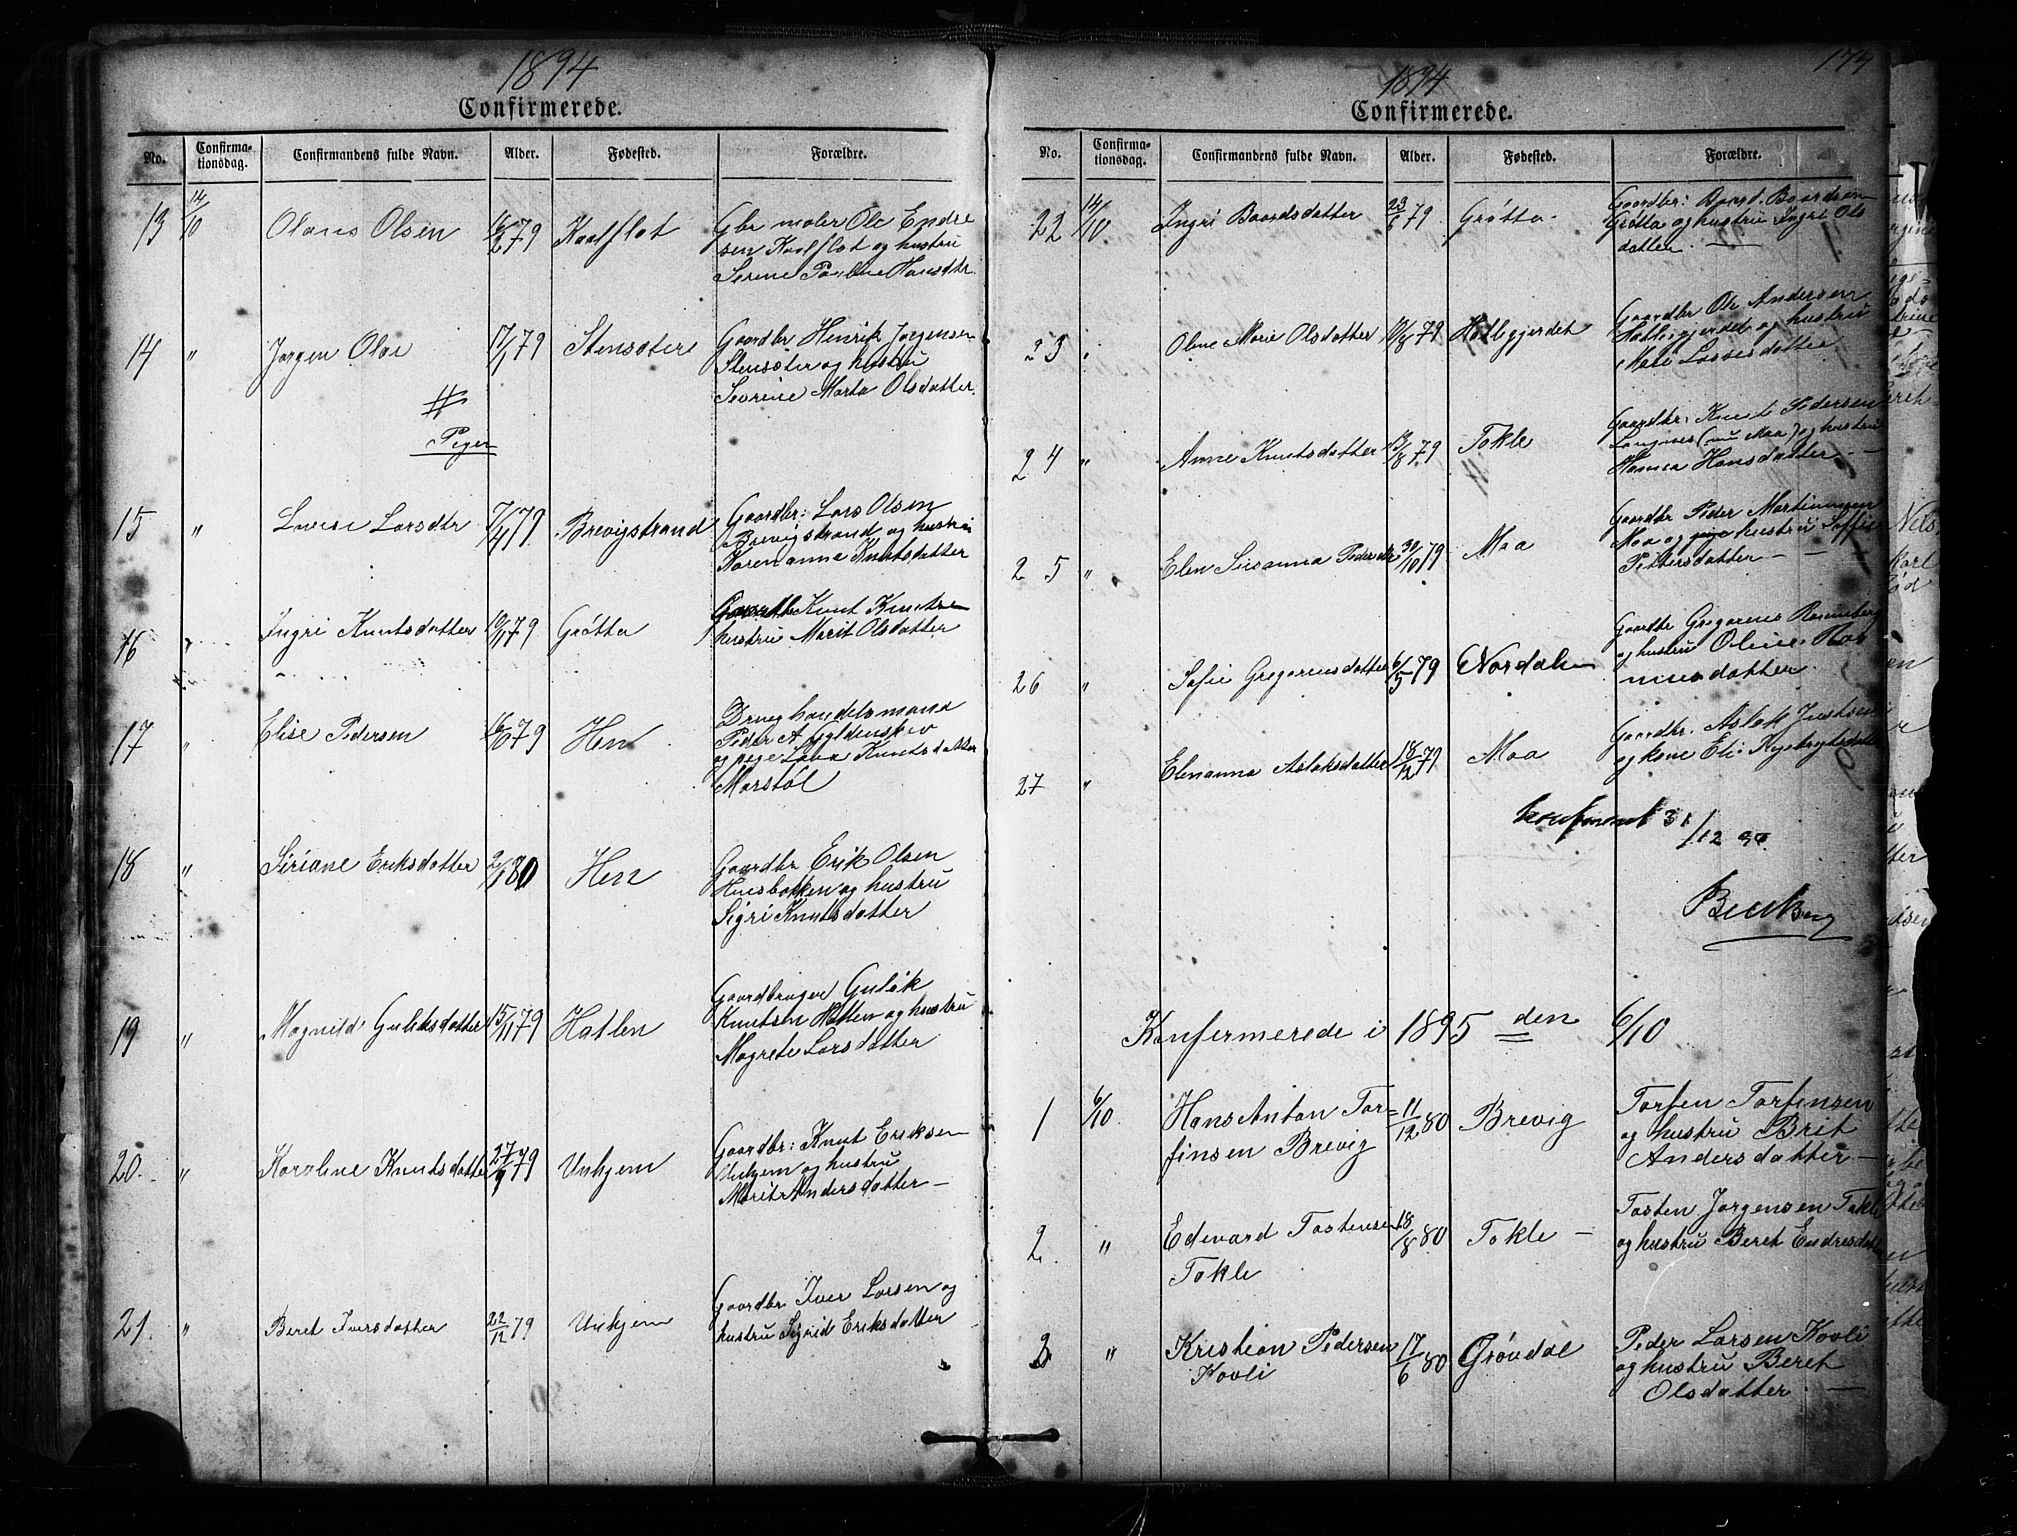 1894
Confirmerede.
No. Confirma-tionsdag. Confirmandens fulde Navn. Alder. Fødested. Forældre.
13 14/10 Olaus Olsen 16/2 79 Kaalflot Gbr maler Ole Endre
sen Kaalflot og hustru
Serine Pauline Hansdtr
14 " Jørgen Olai 17/1 79 Stensøter Gaardbr Henrik Jørgensen
Stensøter og hustru
Severine Marta Olsdatter.
#
Piger
15 " Lovise Larsdtr 7/4 79 Brevigstrand Gaardbr: Lars Olsen
Brevigstrand og hustru
Karenanna Knutsdatter
16 " Ingri Knutsdatter 10/1 79 Grøtta Gaardb Knut Knutsen
hustru Marit Olsdatter
17 " Elise Pedersen 16/10 79 Hen
Peder A Gyldenskov
og pige Lava Knutsdatter
Marstøl
18 " Siriane Eriksdatter 2/1 80 Hen Gaardbr Erik Olsen
Hensbakken og hustru
Sigri Knutsdatter
19 " Magnild Guliksdatter 15/11 79 Hatlen Gaardbruger Gulik
Knutsen Hatlen og hustru
Magrete Larsdatter
20. " Karoline Knutsdatter 27/9 79 Unhjem Gaardbr: Knut Eriksen
Unhjem og hustru
Marit Andersdatter –
21. " Beret Iversdatter 22/12 79 Unhjem Gaardbr Iver Larsen og
hustru Sigrid Eriksdatter
1894
Confirmerede.
No. Confirma-tionsdag. Confirmandens fulde Navn. Alder. Fødested. Forældre.
22 14/10 Ingri Baardsdatter 23/6 79 Grøtta Gaardbr: Baard Baardsen
Grøtta og hustru Ingri Ols
datter. —
23 " Oline Marie Olsdatter 10/8 79 Hatlegjerdet Gaardbr Ole Andersen
Hatlegjerdet og hustru
Mali Lassesdatter
24 " Anne Knutsdatter 13/8 79 Tokle Gaardbr: Knut Pedersen
Langnes (nu Maa) og hustru
Hansdatter —
25 " Elen Susanna Pedersdtr 30/10 79 Maa Gaardbr Peder Martinusen
Maa og hustru Soffie
Pettersdatter — —
26 " Sofie Gregoriusdatter 6/5 79 Nordalen Gaardbr Gregorius
og hustru Oline Ras
musdatter.
27 " Elenanna Aslaksdatter 18/12 79 Maa Gaardbr. Aslak Justsen
og kone Eli
31/12 94
Konfermerede i 1895 den 6/10
1 6/10 Hans Anton Tor= 11/12 80 Brevig Torfen Torfensen
finsen Brevig og hustru Brit
Andersdatter –
2 " Edevard Tostensen 18/8 80 Tokle – Tosten Jørgensen Tokle
Tokle og hustru Beret Endresdatter
3 " Kristian Pedersen 17/6 80 Grøvdal Peder Larsen Kovli
Kovli og hustru Beret
Olsdatter. —